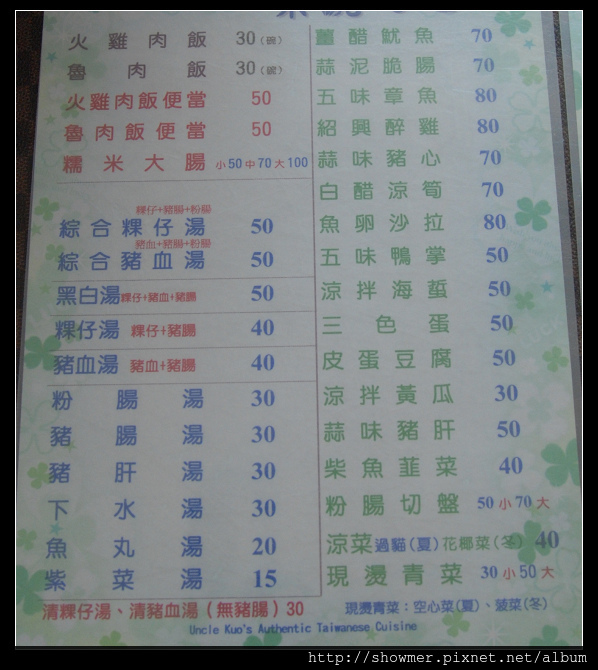 火雞肉飯 30(碗)
魯肉飯 30(碗)
火雞肉飯便當 50
魯肉飯便當 50
糯米大腸 小50中70大100
粿仔+豬腸+粉腸
綜合粿仔湯 50
豬血+豬腸+粉腸
綜合豬血湯 50
黑白湯 粿仔+豬血+豬腸 50
粿仔湯 粿仔+豬腸 40
豬血湯 豬血+豬腸 40
粉腸湯 30
豬腸湯 30
豬肝湯 30
下水湯 30
魚丸湯 20
紫菜湯 15
清粿仔湯、清豬血湯(無豬腸)30
薑醋魷魚 70
蒜泥脆腸 70
五味章魚 80
紹興醉雞 80
蒜味豬心 70
白醋涼筍 70
魚卵沙拉 80
五味鴨掌 50
涼拌海蜇 50
三色蛋 50
皮蛋豆腐 50
涼拌黃瓜 30
蒜味豬肝 50
柴魚韮菜 40
粉腸切盤 50小70大
涼菜過貓(夏)花椰菜(冬) 40
現燙青菜 30小50大
現燙青菜:空心菜(夏)、菠菜(冬)
Uncle Kuo's Authentic Taiwanese Cuisine
http://showmer.pixnet.net/album